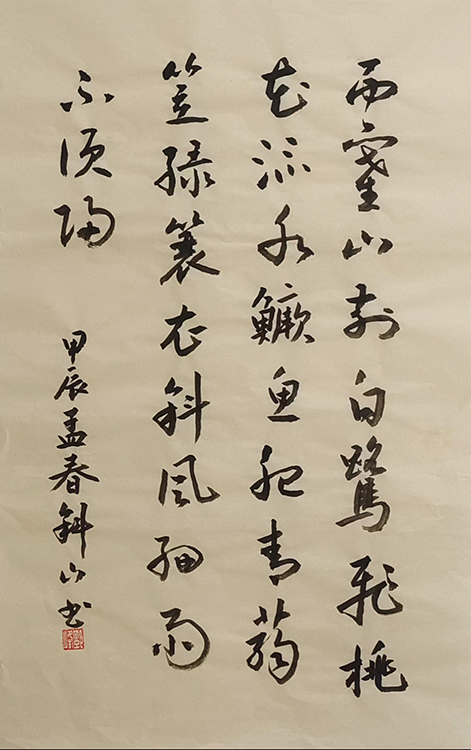 西塞山前白鹭飞桃
花流水鳜鱼肥青蒻
笠绿蓑衣斜风细雨
不须归
甲辰孟春斜山书